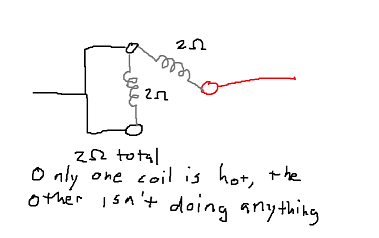 2Ω
2Ω
2Ω total
Only one coil is hot, the
other isn't doing anything